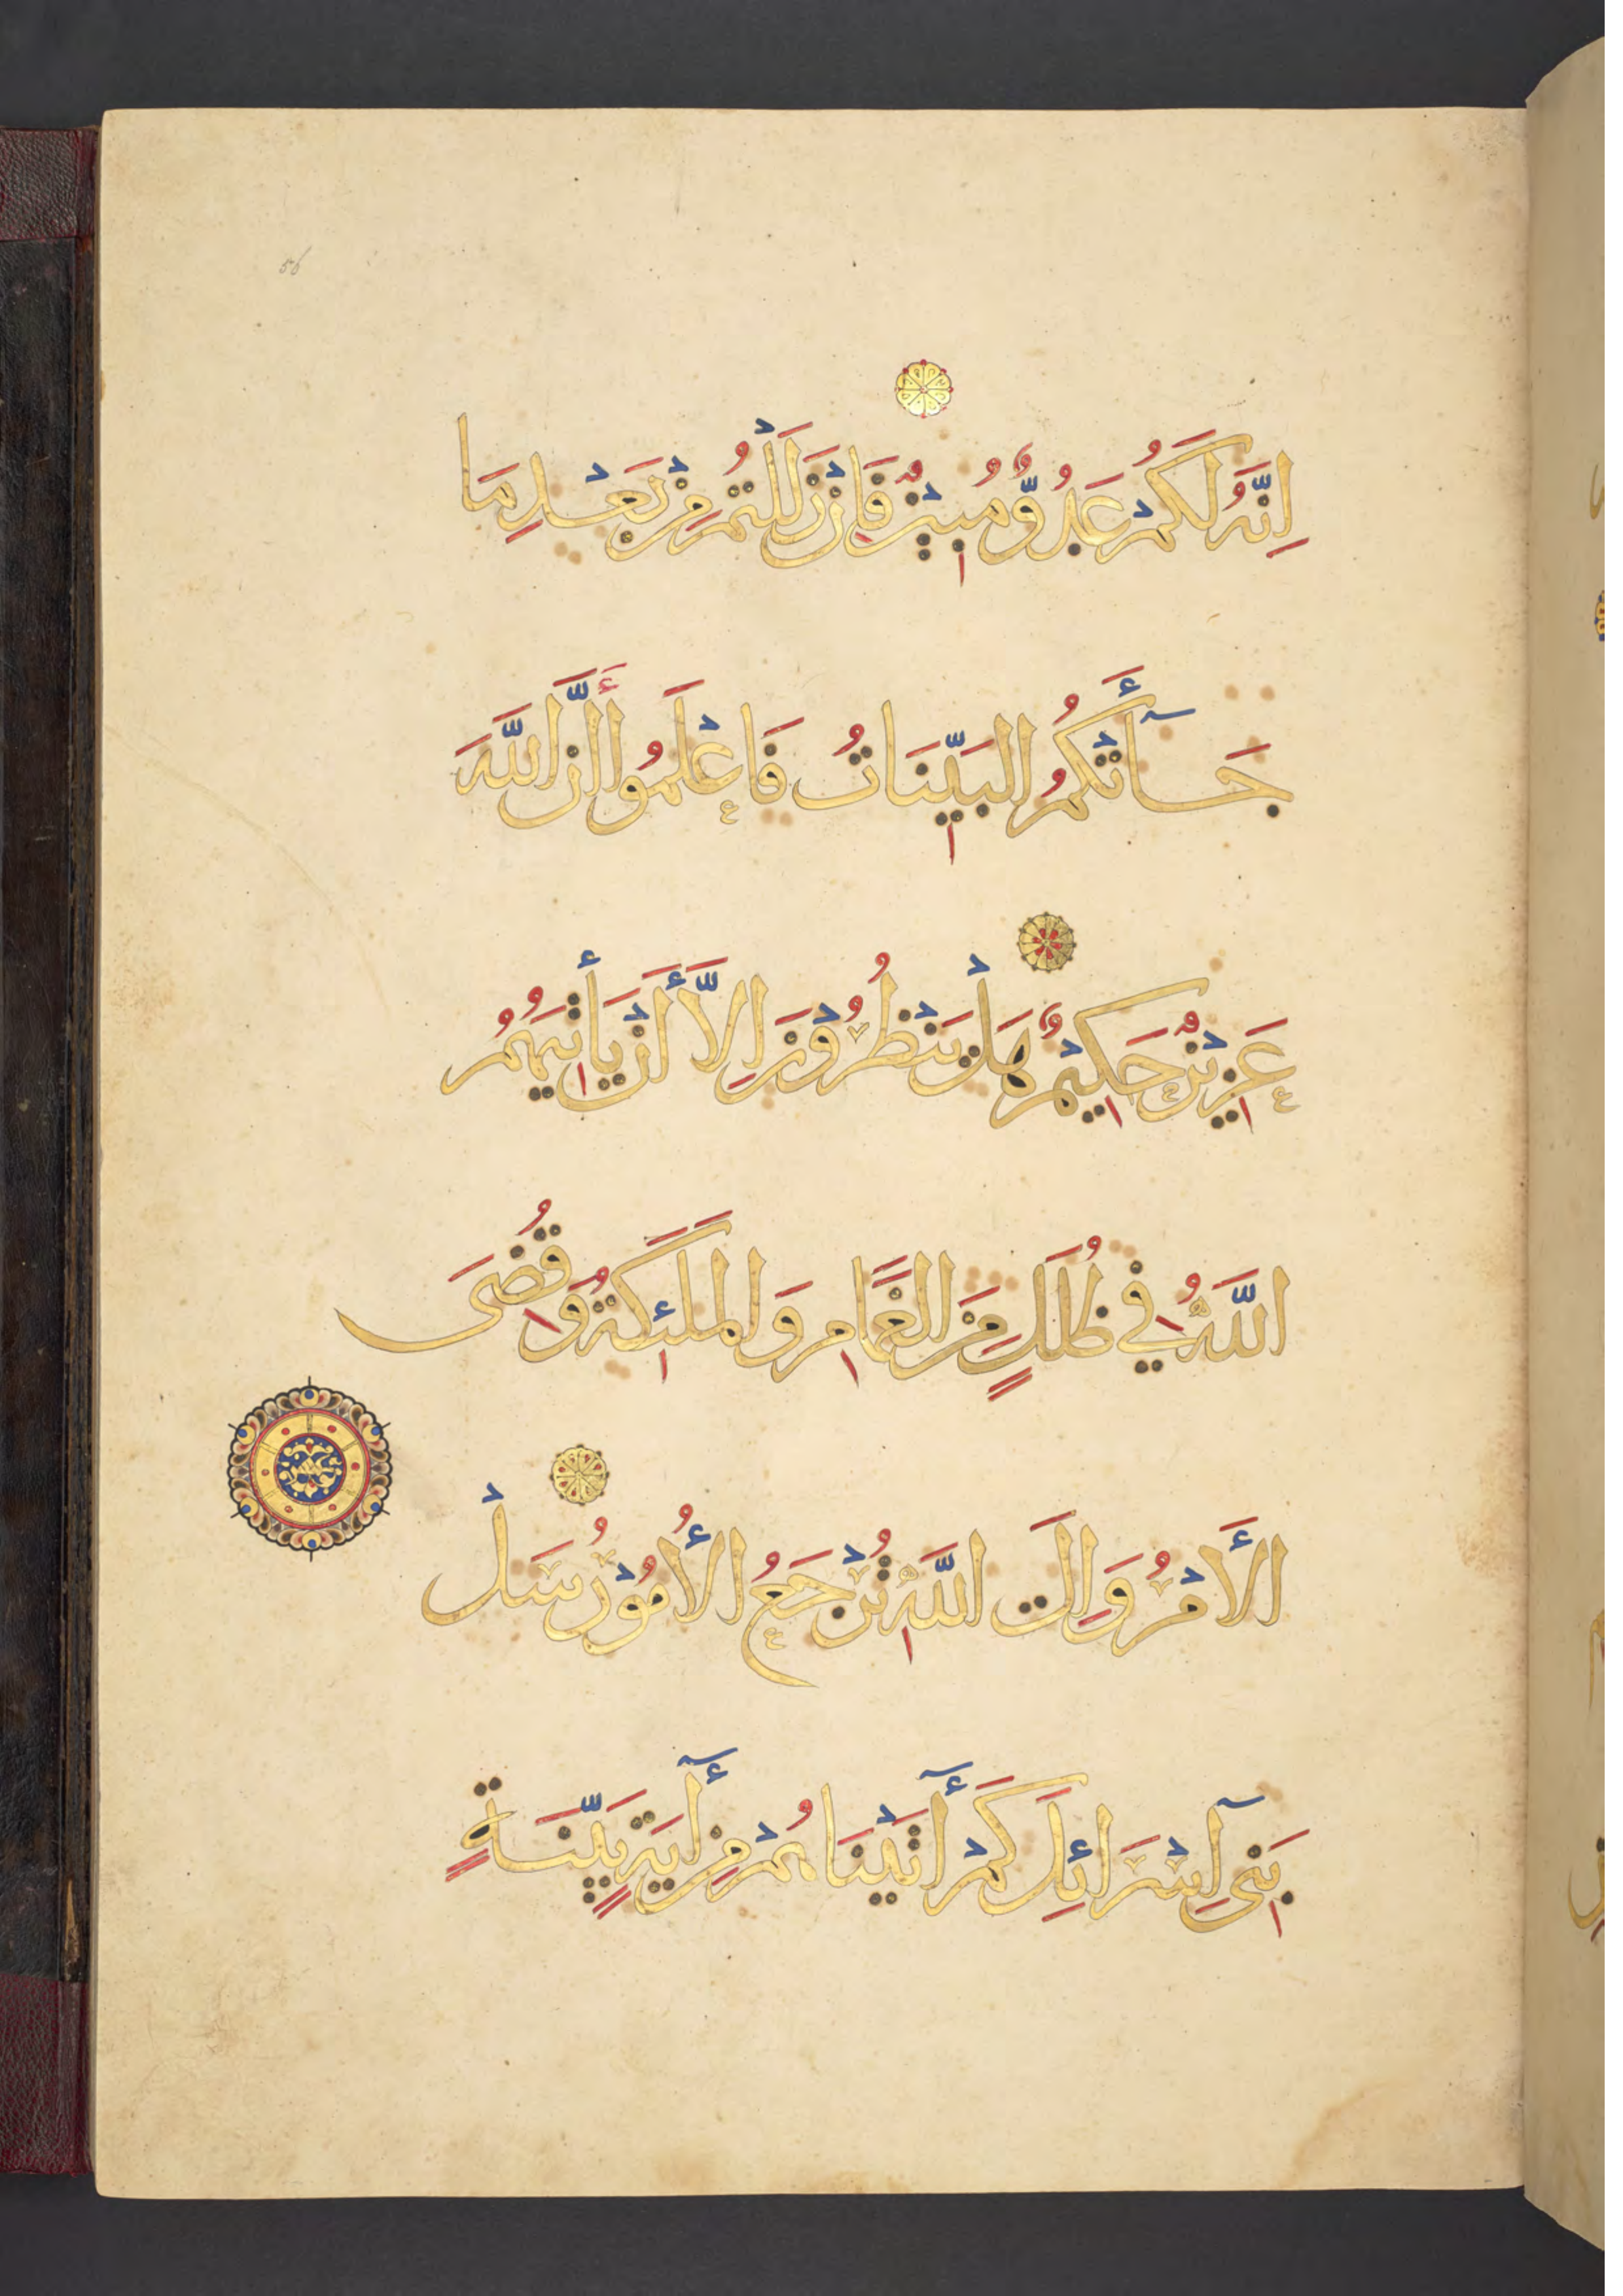 56
اِنَّهُ لَكُمْ عَدُوٌّ مُبِيْنٌ فَاِنْ زَلَلْتُمْ مِنْ بَعْدِ مَا
جَآأَتْكُمُ الْبَيِّنَاتُ فَاعْلَمُوا أَنَّ اللَّهَ
عَزِيْزٌ حَكِيْمٌ هَلْ يَنْظُرُوْنَ اِلَّا أَنْ يَأْتِيَهُمُ
اللَّهُ فِي ظُلَلٍ مِنَ الْغَمَامِ وَالْمَلٰئِكَةُ وَقُضِىَ
الْأَمْرُ وَاِلَى اللَّهِ تُرْجَعُ الْأُمُوْرُ سَلْ
بَنِىۤ اِسْرَائِلَ كَمْ أٰتَيْنَاهُمْ مِنْ أٰيَةٍ بَيِّنَةٍ